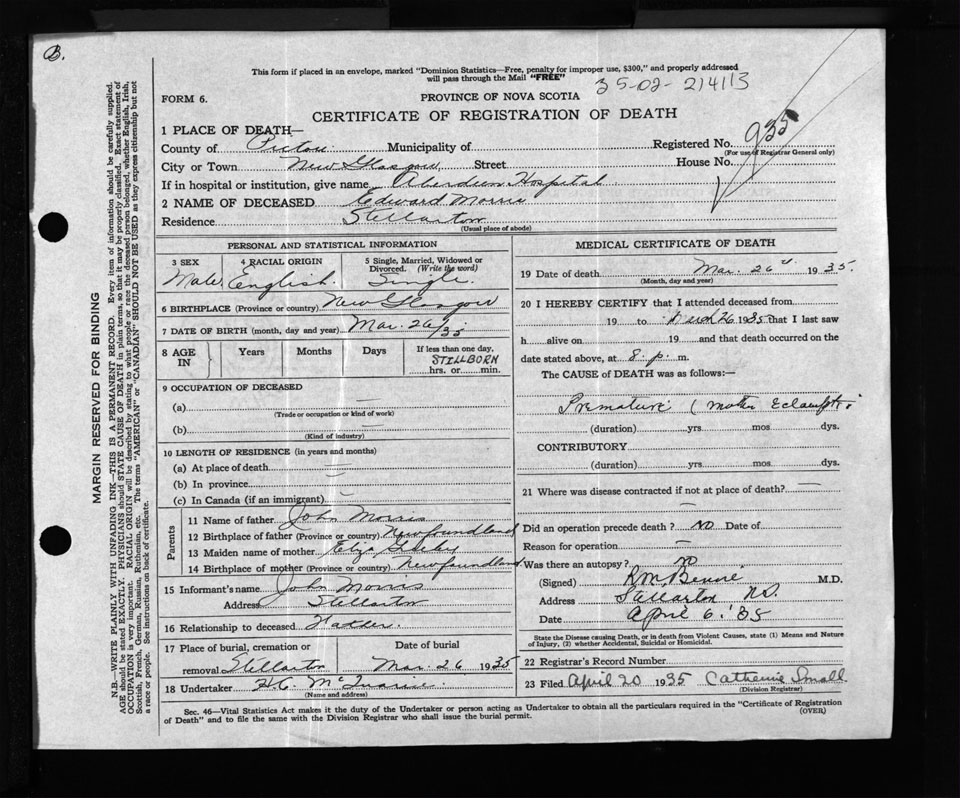 B.
This form if placed in an envelope, marked "Dominion Statistics—Free, penalty for improper use, $300," and properly addressed
will pass through the Mail "FREE"
35-02-214113
FORM 6.
PROVINCE OF NOVA SCOTIA
CERTIFICATE OF REGISTRATION OF DEATH
935
1 PLACE OF DEATH—
County of Pictou Municipality of Registered No.
(For use of Registrar General only)
City or Town New Glasgow Street House No.
If in hospital or institution, give name Aberdeen Hospital
2 NAME OF DECEASED Edward Morris
Residence Stellarton
(Usual place of abode)
PERSONAL AND STATISTICAL INFORMATION
3 SEX 4 RACIAL ORIGIN 5 Single, Married, Widowed or
Divorced. (Write the word)
Male English. Single.
6 BIRTHPLACE (Province or country) New Glasgow
7 DATE OF BIRTH (month, day and year) Mar. 26/35
8 AGE IN Years Months Days If less than one day,
STILLBORN
hrs. or min.
9 OCCUPATION OF DECEASED
(a) —
(Trade or occupation or kind of work)
(b) —
(Kind of industry)
10 LENGTH OF RESIDENCE (in years and months)
(a) At place of death —
(b) In province —
(c) In Canada (if an immigrant) —
Parents
11 Name of father John Morris
12 Birthplace of father (Province or country) Newfoundland
13 Maiden name of mother Eliza
14 Birthplace of mother (Province or country) Newfoundland
15 Informant's name John Morris
Address Stellarton
16 Relationship to deceased Father.
17 Place of burial, cremation or Date of burial
removal Stellarton Mar. 26 1935
18 Undertaker H.C. McQuarrie
(Name and address)
MEDICAL CERTIFICATE OF DEATH
19 Date of death Mar. 26 1935.
(Month, day and year)
20 I HEREBY CERTIFY that I attended deceased from
19 to 26 1935 that I last saw
h alive on 19 and that death occurred on the
date stated above, at 8. p. m.
The CAUSE of DEATH was as follows:—
Premature (mother
(duration) yrs mos dys.
CONTRIBUTORY
(duration) yrs mos dys.
21 Where was disease contracted if not at place of death? —
—
Did an operation precede death? NO Date of
Reason for operation —
Was there an autopsy? no
(Signed) M.D.
Address Stellarton N.S.
Date April 6. '35
State the Disease causing Death, or in death from Violent Causes, state (1) Means and Nature
of Injury, (2) whether Accidental, Suicidal or Homicidal.
22 Registrar's Record Number
23 Filed April 20 1935 Catherine Small
(Division Registrar)
Sec. 46—Vital Statistics Act makes it the duty of the Undertaker or person acting as Undertaker to obtain all the particulars required in the "Certificate of Registration
of Death" and to file the same with the Division Registrar who shall issue the burial permit.
(OVER)
MARGIN RESERVED FOR BINDING
N.B.—WRITE PLAINLY WITH UNFADING INK—THIS IS A PERMANENT RECORD. Every item of information should be carefully supplied.
AGE should be stated EXACTLY. PHYSICIANS should STATE CAUSE OF DEATH in plain terms, so that it may be properly classified. Exact statement of
OCCUPATION is very important. RACIAL ORIGIN will be described by stating to what people or race the deceased person belonged, whether English, Irish,
Scottish, French, German, Russian, Ruthenian, etc. The terms "AMERICAN" or "CANADIAN" SHOULD NOT BE USED as they express citizenship but not
a race or people. See instructions on back of certificate.